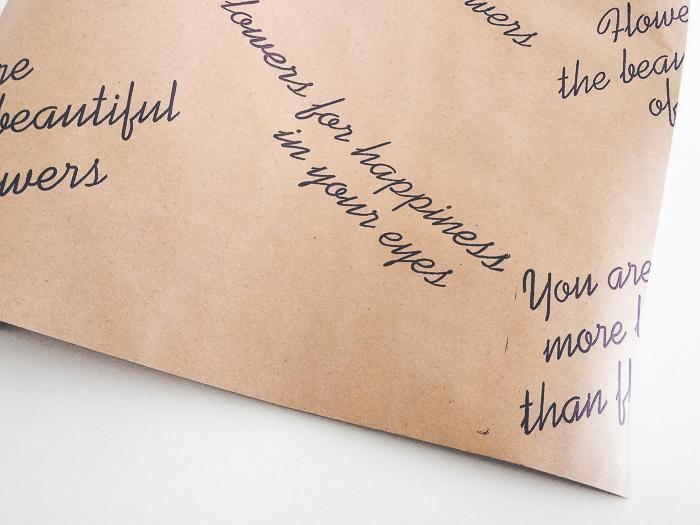 wers
Flowe
the beau
of
re
beautiful
wers
lowers for happiness
in your eyes
You are
more
than fl